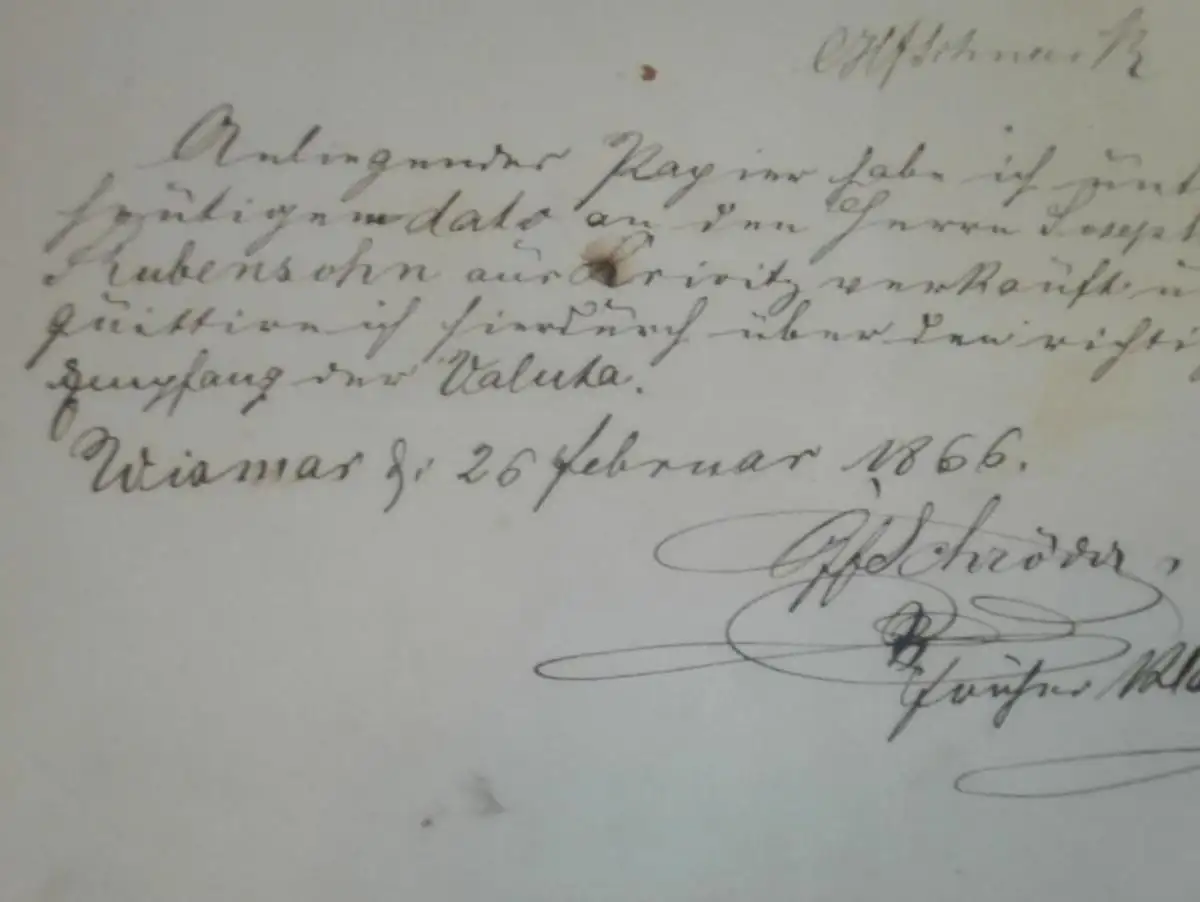 Anliegendes Papier habe ich unt
heutigem dato an den Herrn Joseph
Rubensohn aus Crivitz verkauft u
quittire ich hierdurch über den richti
Empfang der Valuta.
Wismar d. 26 Februar 1866.
Schröder,
früher